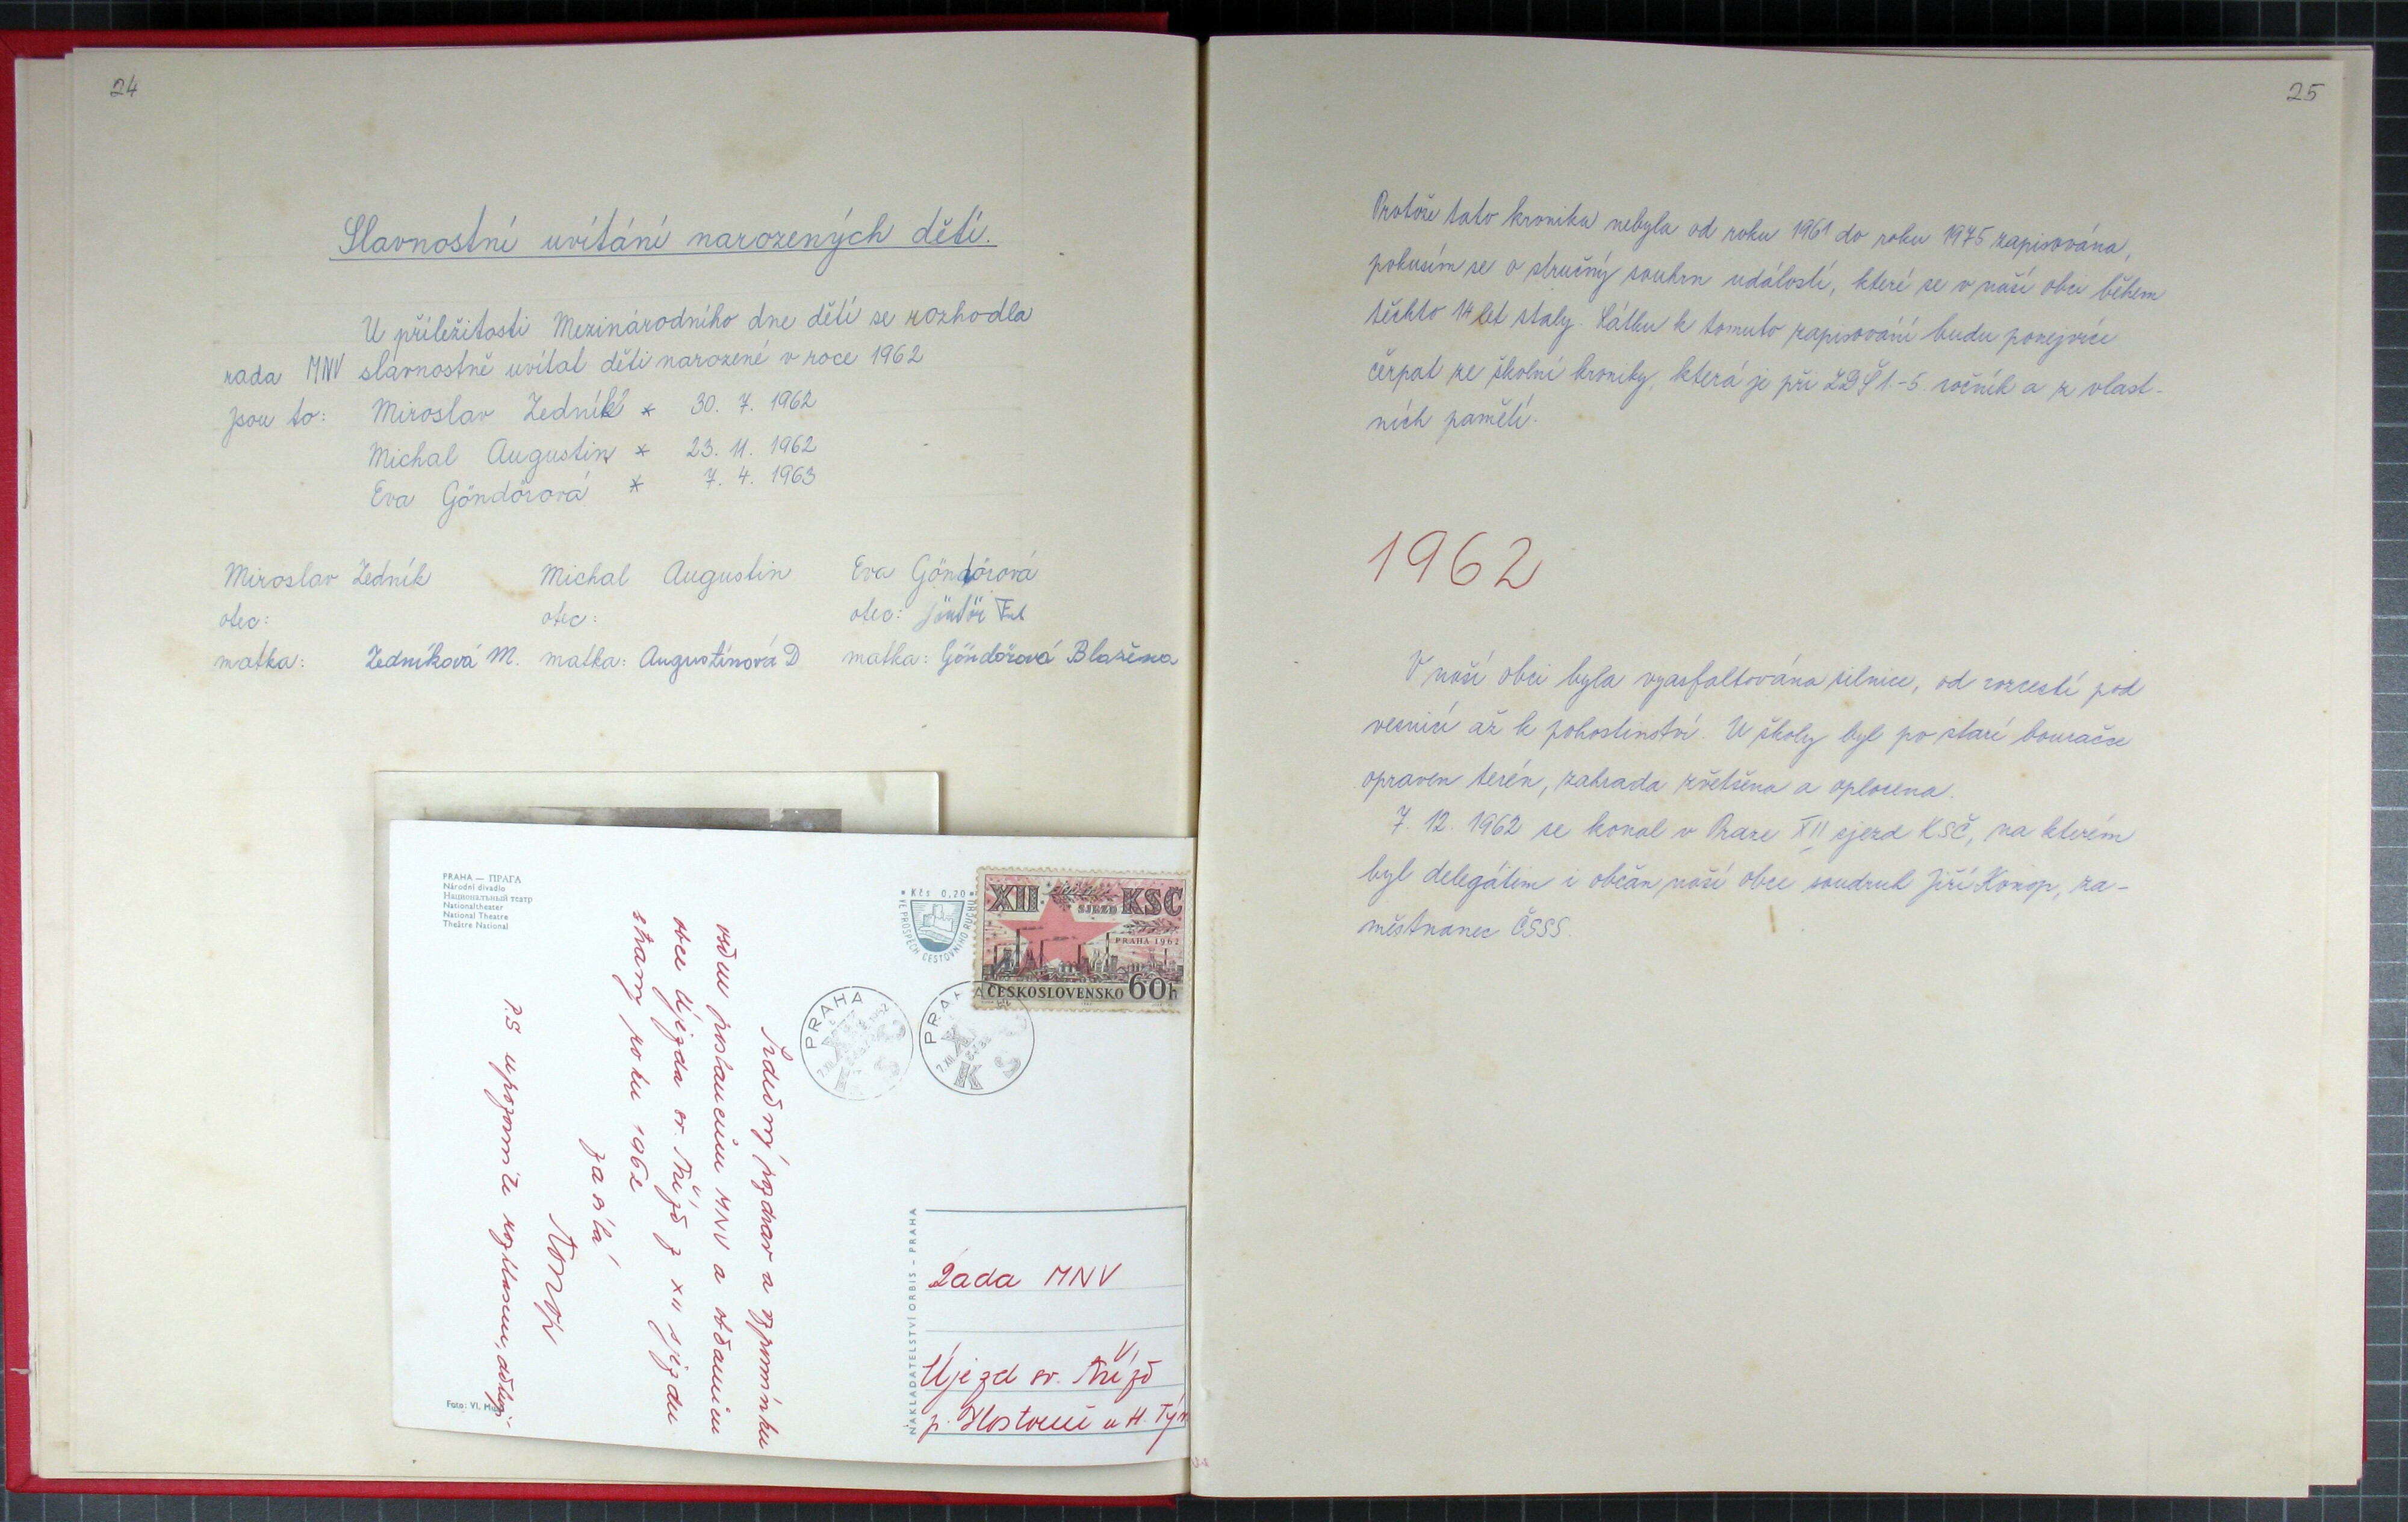 24
Slavnostní uvítání narozených dětí.
U příležitosti Mezinárodního dne dětí se rozhodla
rada MNV slavnostně uvítat děti narozené v roce 1962
Jsou to: Miroslav Zedník * 30. 7. 1962
Michal Augustin * 23. 11. 1962
Eva Göndörová * 7. 4. 1963
Miroslav Zedník Michal Augustin Eva Göndörová
otec: otec: otec: Göndör
matka: Zedníková M. matka: Augustinová D matka: Göndörová Blažena
PRAHA — ПРАГА
Národní divadlo
Национальный театр
Nationaltheater
National Theatre
Theâtre National
* Kčs 0,20 *
VE PROSPĚCH CESTOVNÍHO RUCHU
XII SJEZD KSČ
PRAHA 1962
ČESKOSLOVENSKO 60h
PRAHA
PRAHA
Srdečný pozdrav a vzpomínku
všem poslancům MNV a občanům
obce Újezda sv. Kříž z XII sjezdu
strany roku 1962
zasílá
Konop
P.S upozorněte rozhlasem,
Foto: Vl.
NAKLADATELSTVÍ ORBIS - PRAHA
Rada MNV
Újezd sv. Kříž
p. Hostouň u H. Týn
25
Protože tato kronika nebyla od roku 1961 do roku 1975 zapisována,
pokusím se o stručný souhrn událostí, které se v naší obci během
těchto 14 let staly. Látku k tomuto zapisování budu ponejvíce
čerpat ze školní kroniky, která je při ZDŠ 1.-5. ročník a z vlast-
ních pamětí.
1962
V naší obci byla vyasfaltována silnice, od rozcestí pod
vesnicí až k pohostinství. U školy byl po staré bouračce
opraven terén, zahrada zvětšena a oplocena.
7. 12. 1962 se konal v Praze XII sjezd KSČ, na kterém
byl delegátem i občan naší obce soudruh Jiří Konop, za-
městnanec ČSSS.